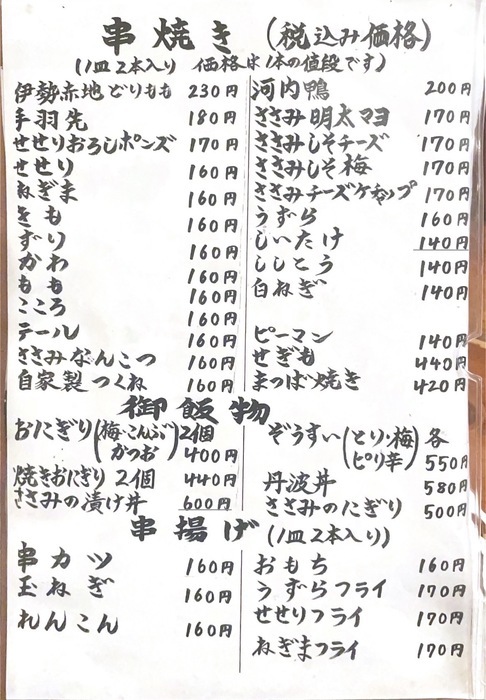 串焼き (税込み価格)
(1皿2本入り 価格は1本の値段です)
伊勢赤地どりもも 230円
手羽先 180円
せせりおろしポンズ 170円
せせり 160円
ねぎま 160円
きも 160円
ずり 160円
かわ 160円
もも 160円
こころ 160円
テール 160円
ささみなんこつ 160円
自家製つくね 160円
河内鴨 200円
ささみ明太マヨ 170円
ささみしそチーズ 170円
ささみしそ梅 170円
ささみチーズケチャップ 170円
うずら 160円
しいたけ 140円
ししとう 140円
白ねぎ 140円
ピーマン 140円
せぎも 440円
まつば焼き 420円
御飯物
おにぎり(梅・こんぶ かつお)2個 400円
焼きおにぎり2個 440円
ささみの漬け丼 600円
ぞうすい(とり・梅 ピリ辛)各 550円
丹波丼 580円
ささみのにぎり 500円
串揚げ (1皿2本入り)
串カツ 160円
玉ねぎ 160円
れんこん 160円
おもち 160円
うずらフライ 170円
せせりフライ 170円
ねぎまフライ 170円